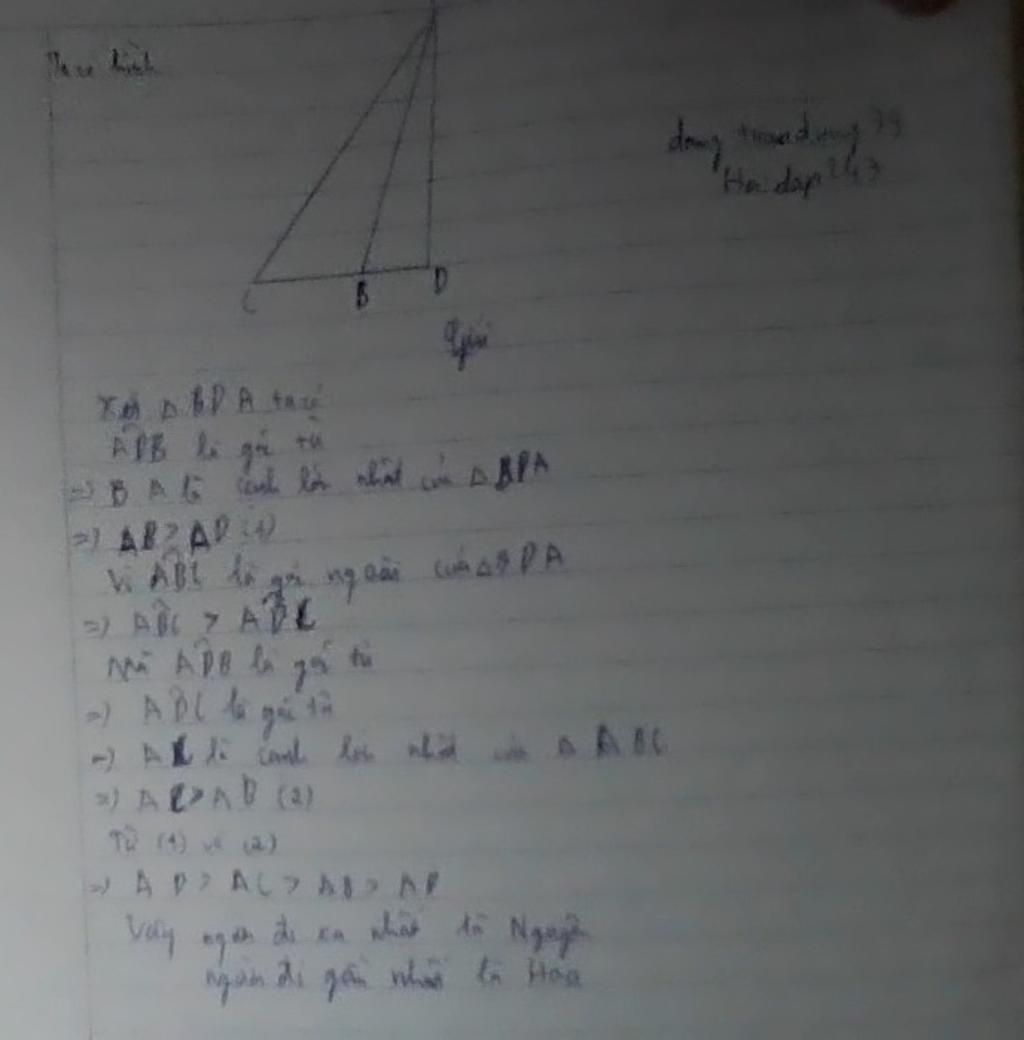 Ta có hình
C B D
Giải
Xét △ BDA ta có
ADB là góc tù
=) BA là cạnh lớn nhất của △ BDA
=) AB > AD (1)
Vì ABC là góc ngoài của △ BDA
=) ABC > ADC
Mà ADB là góc tù
=) ADC là góc tù
=) AC là cạnh lớn nhất của △ ABC
=) AC > AD (2)
Từ (1) và (2)
=) AD > AC > AB > AD
Vậy người đi xa nhất là Nguyên
người đi gần nhất là Hoa